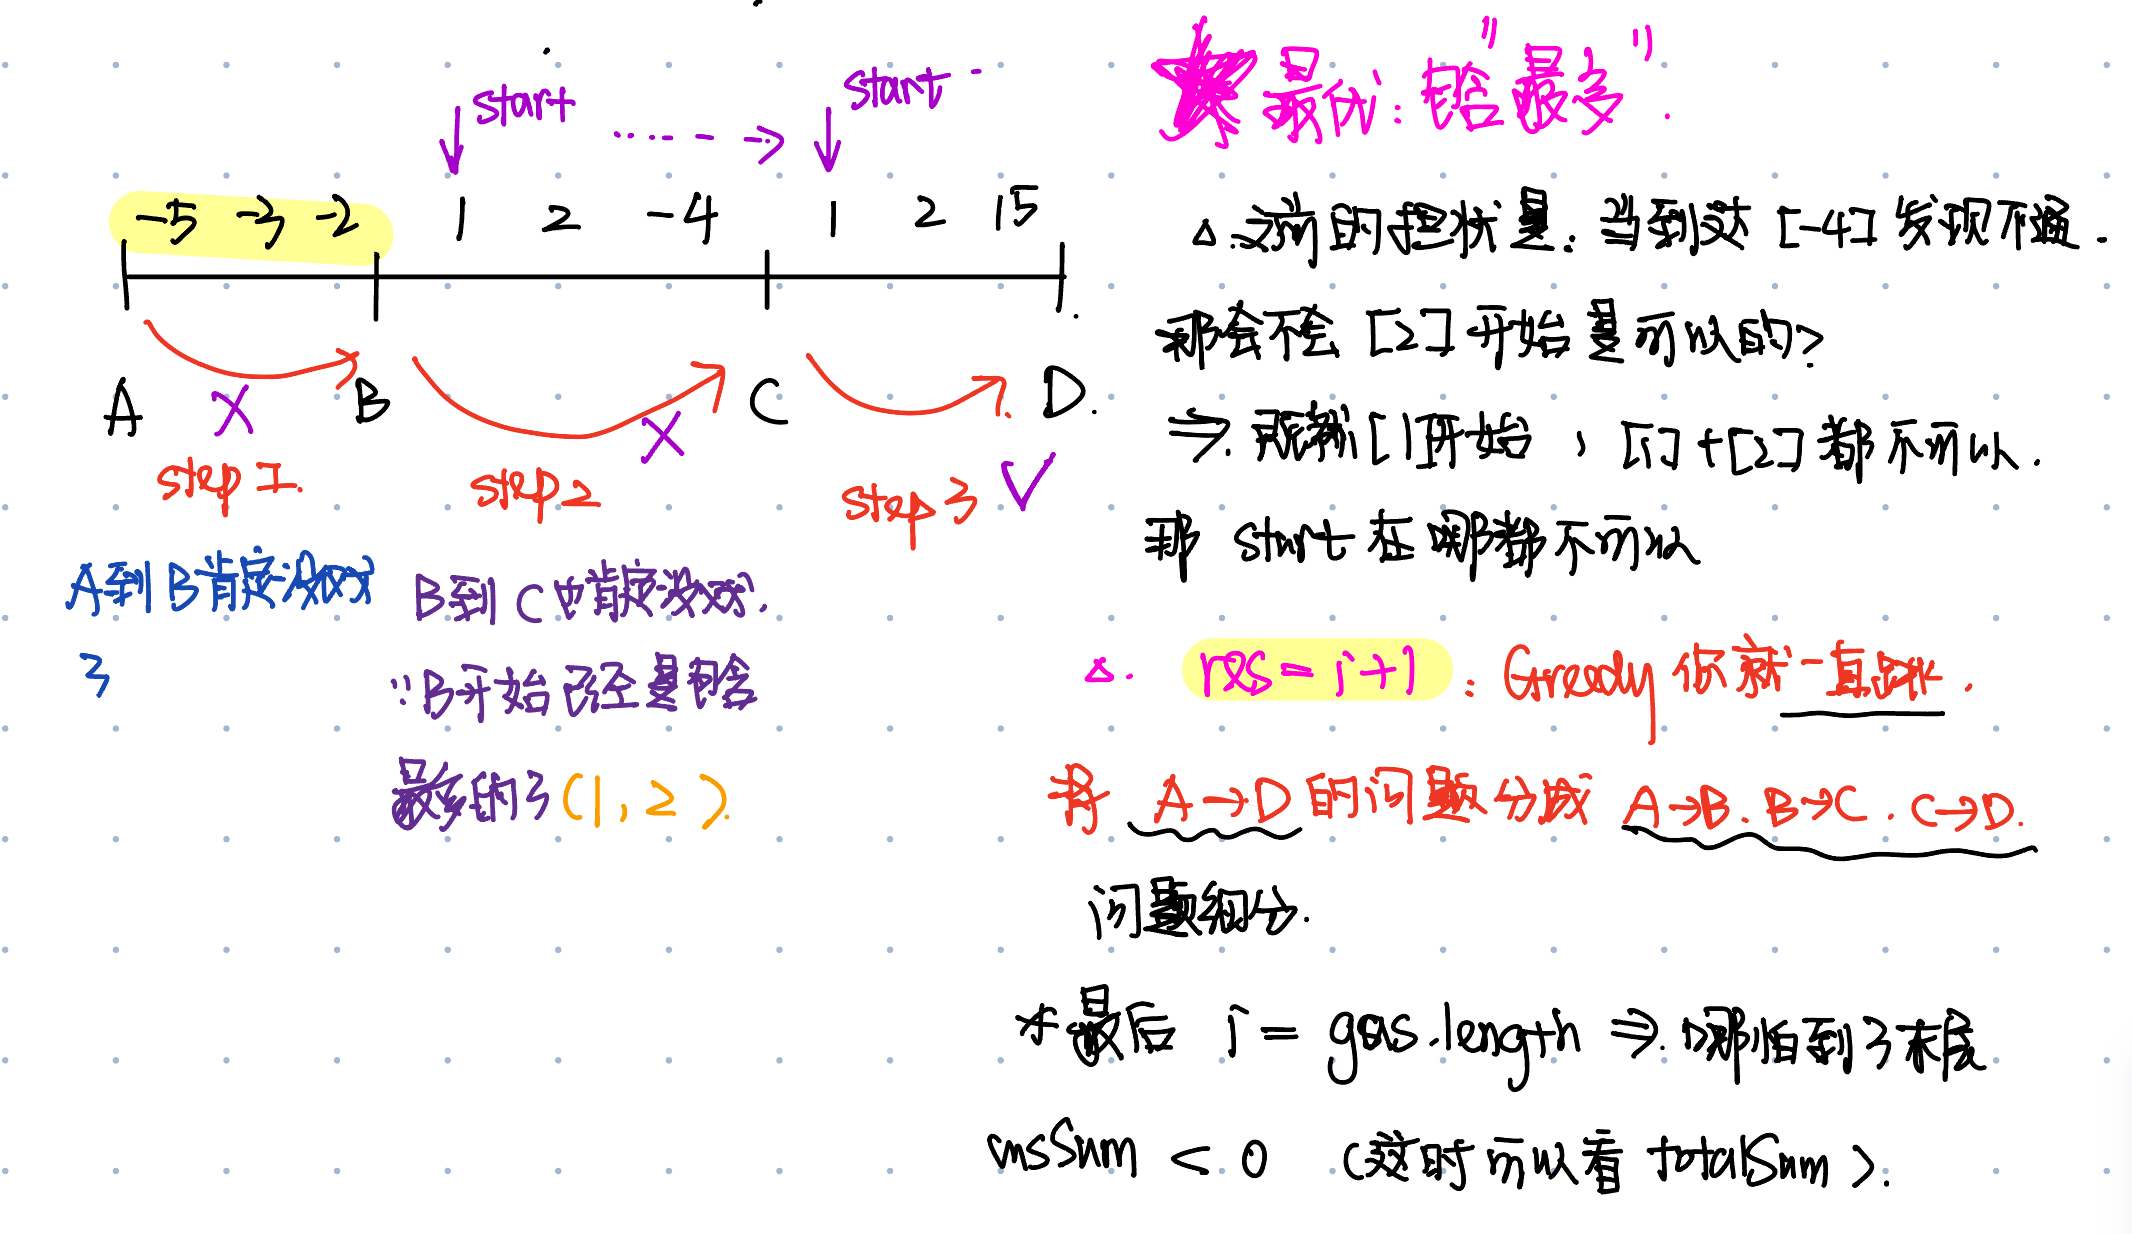 start
start
-5 -3 -2 1 2 -4 1 2 15
A B C D.
step 1.
step 2
step 3
A到B肯定没戏
了
B到C也肯定没戏.
∵B开始已经是包含
最多的了(1,2).
最优: 包含"最多".
△. 这前的担忧是. 当到达[-4]发现不通.
那会不会[2]开始是可以的?
⇒. 既然[1]开始, [1]+[2]都不可以.
那 start 在哪都不可以
△. res = i+1 : Greedy 你就一直跳.
将 A→D 的问题分成 A→B. B→C. C→D.
问题细分.
*最后 i = gas.length ⇒. 哪怕到了末尾
cusSum < 0 (这时可以看 totalSum).